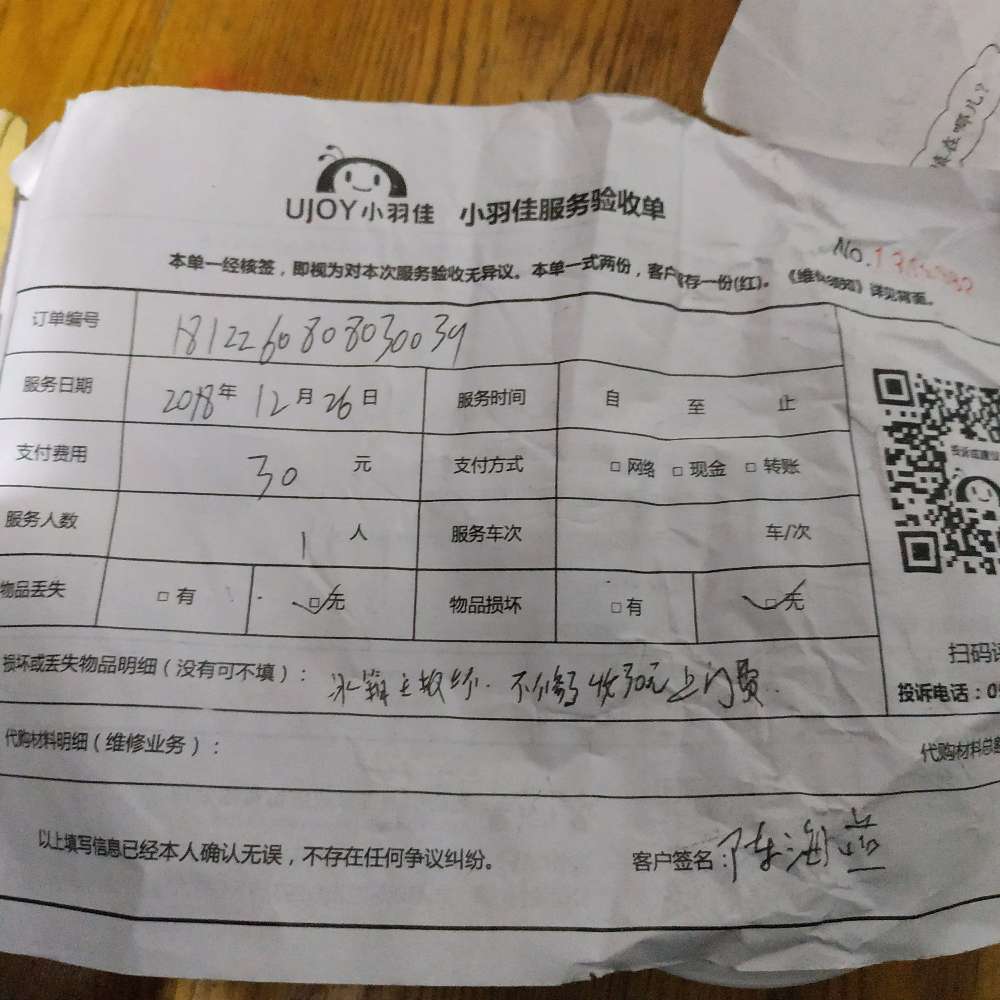 UJOY小羽佳 小羽佳服务验收单
No.
本单一经核签，即视为对本次服务验收无异议。本单一式两份，客户 存一份(红)。《维修须知》详见背面。
订单编号 1812260808030039
服务日期 2018年12月26日 服务时间 自 至 止
支付费用 30 元 支付方式 □网络 □现金 □转账
服务人数 1 人 服务车次 车/次
物品丢失 □有 □无 物品损坏 □有 □无
损坏或丢失物品明细（没有可不填）： 冰箱主板坏.不修了收30元上门费.
代购材料明细（维修业务）：
代购材料总
以上填写信息已经本人确认无误，不存在任何争议纠纷。 客户签名：陈海燕
扫码
投诉电话：0
在哪儿？